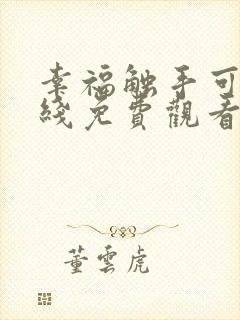 幸福触手可
綫免費觀看
董雲虎